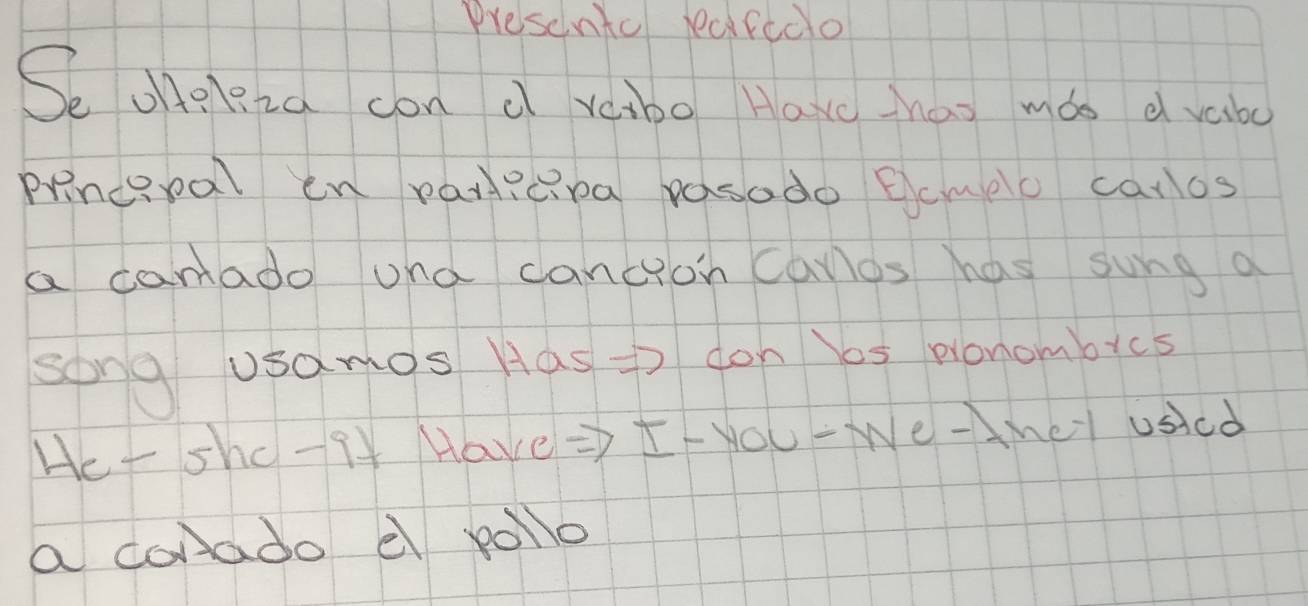 Presente perfecto
Se utiliza con el verbo Have - has más el verbo
principal en participa pasado Ejemplo carlos
a cantado una canción Carlos has sung a
song usamos Has => con los pronombres
He - she - it Have => I - you - We - they usted
a cortado el pollo